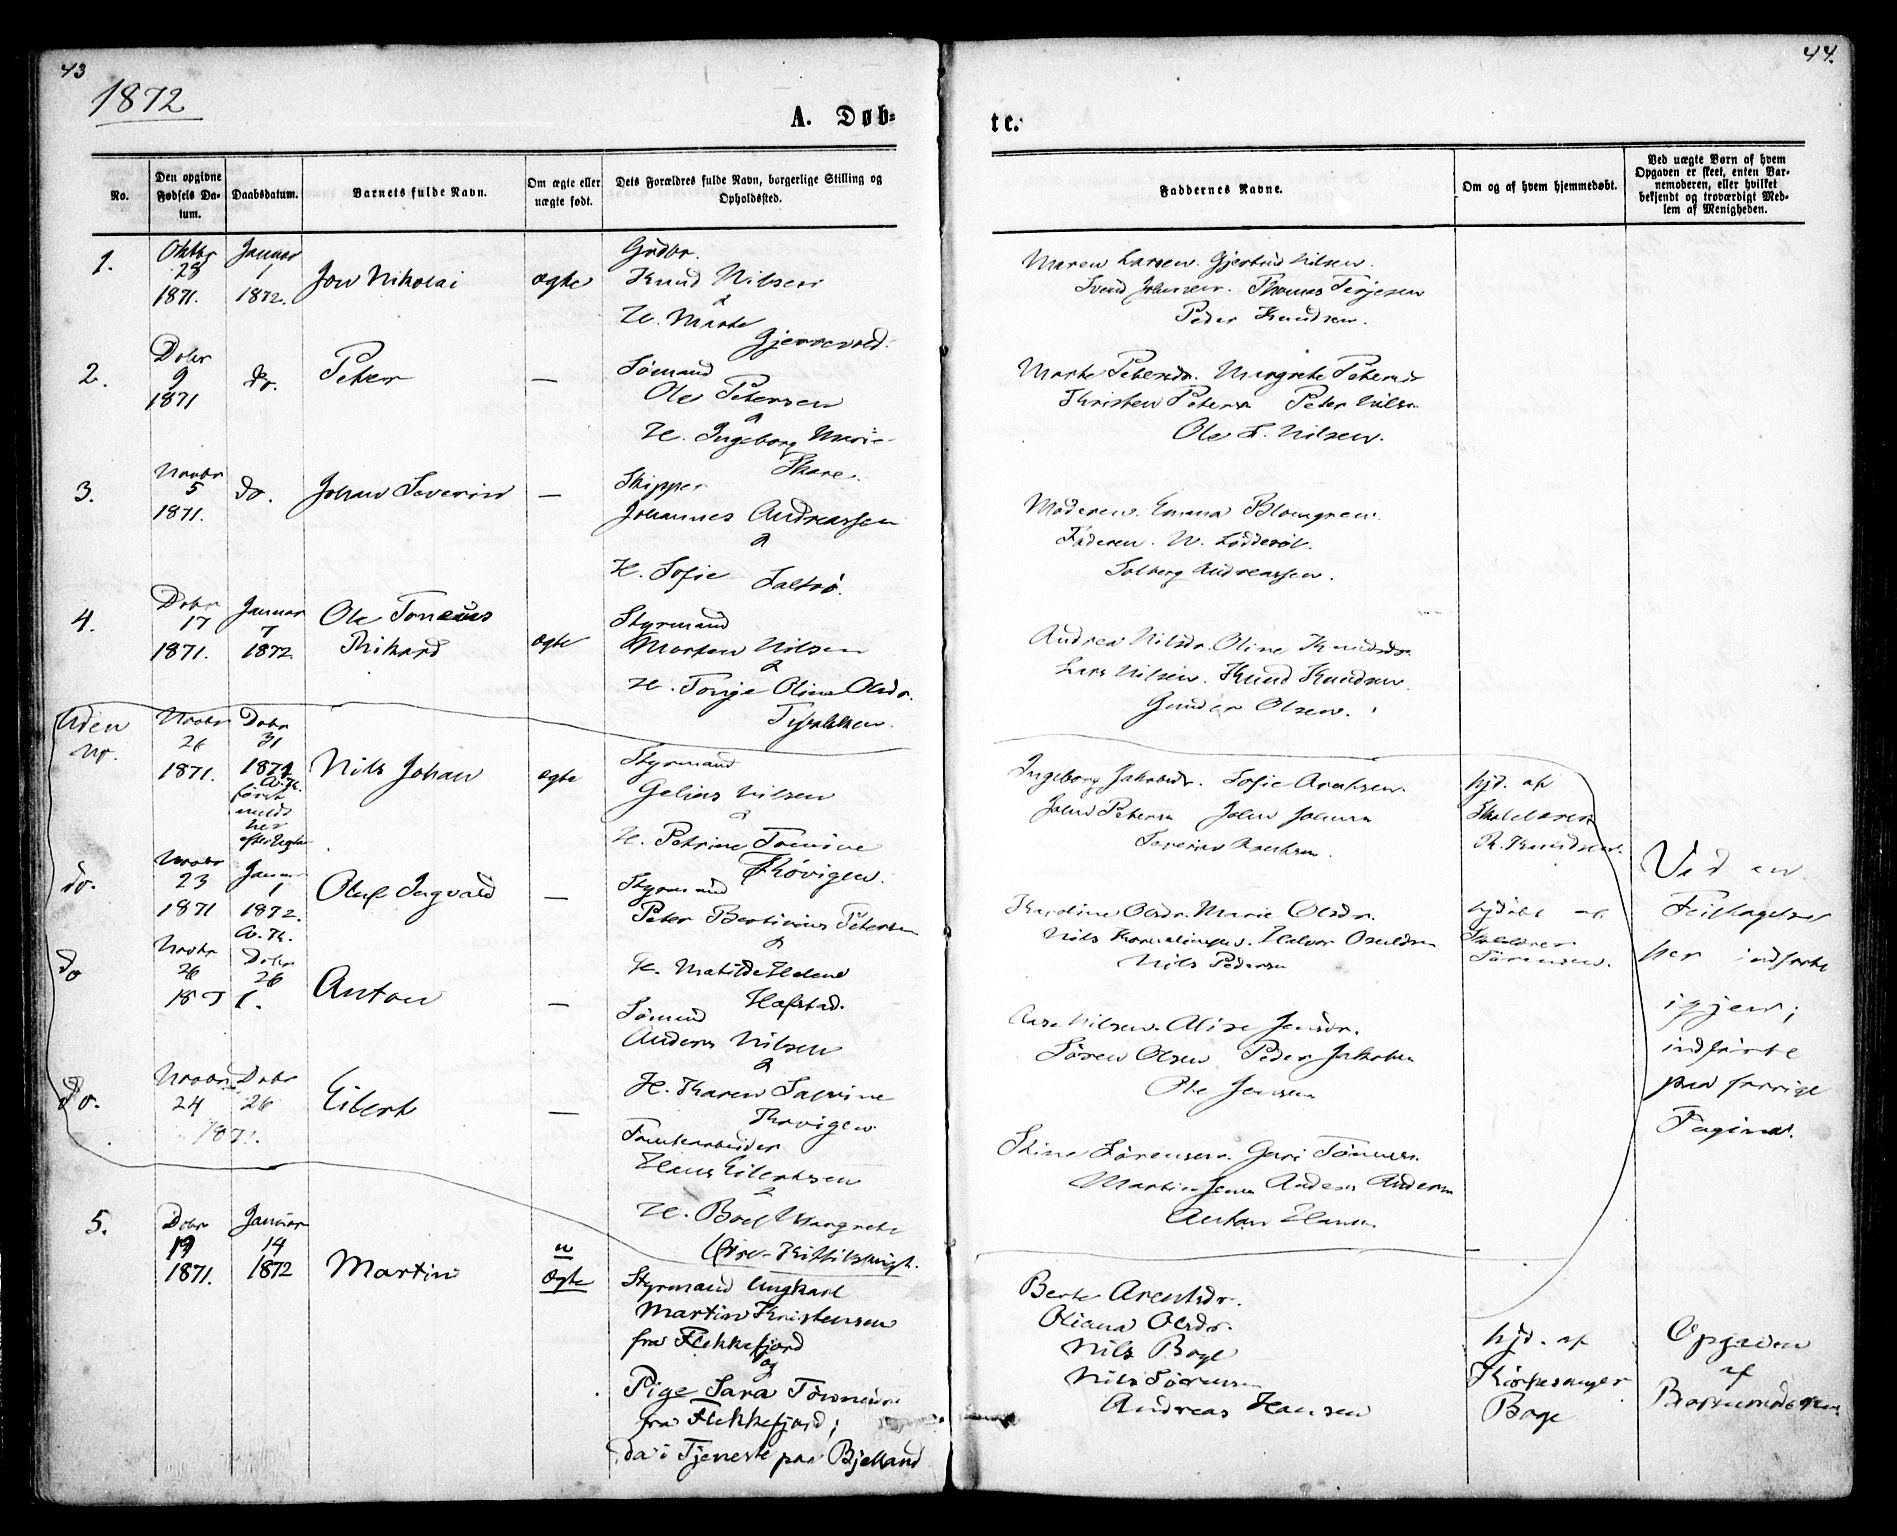 43
44.
1872
A. Døb-
te.
No.
Den opgivne Fødsels Da-tum.
Daabsdatum.
Barnets fulde Navn.
Om ægte eller uægte født.
Dets Forældres fulde Navn, borgerlige Stilling og Opholdssted.
Faddernes Navne.
Om og af hvem hjemmedøbt.
Ved uægte Børn af hvem Opgaven er skeet, enten Bar-nemoderen, eller hvilket bekjendt og troværdigt Med-lem af Menigheden.
1.
Oktbr 28 1871.
Januar 1 1872.
Jon Nikolai
ægte
Grdbr.
Knud Nilsen
&
H. Marte
Gjerrevold.
Maren Larsen. Gjertrud Nilsen.
Svend Johnsen. Thomas Terjesen
Peder Knudsen.
2.
Debr 9 1871
do.
Peter
—
Sømand
Ole Petersen
&
H. Ingeborg Marie
Skare.
Marte Petersdr. Margrete Petersdr
Kristen Petersen Peter Nilsen
Ole L. Nilsen.
3.
Novbr 5 1871.
do.
Johan Severin
—
Skipper
Johannes Andreassen
&
H. Sofie Saltrø.
Moderen. Emma Blomgren.
Faderen. W. Lødderøl.
Solberg Andreassen.
4.
Debr 17 1871.
Januar 7 1872
Ole Toneus
Rikard
ægte
Styrmand
Morten Nilsen
&
H. Tonge Oline Olsdr.
Andrea Nilsdr. Oline Knudsdr.
Lars Nilsen. Knud Knudsen.
Gunder Olsen.
Uden No.
Novbr 26 1871.
Debr 31 1871
Nils Johan
ægte
Styrmand
Gelius Nilsen
&
H. Petrine Tomine
Thrøvigen.
Ingeborg Jakobsdr. Sofie Arentsen.
John Petersen John Johnsen
Severin Arentsen.
hjd. af
Skolelærer
K. Knudsen.
do.
Novbr 23 1871
Januar 1 1872.
Oluf Ingvald
—
Styrmand
Peter Bertinius Petersen
&
H. Matilde Helene
Hafstad.
Karoline Olsdr. Marie Olsdr.
Nils Korneliussen. Halvor Osuldsen
Nils Pedersen
hjdøbt af
Sørensen.
do
Novbr 26 1871.
Debr 26
Anton
—
Sømand
Anders Nilsen
&
H. Karen Salvine
Thrøvigen.
Aase Nilsen. Alise Jensdr.
Søren Olsen Peder Jakobsen
Ole Jensen
do.
Novbr 24 1871.
Debr 26
Eilert
—
Tomtearbeider
Hans Eilertsen
&
H. Boel Margrete
Stine Sørensen. Guri Tønnesen.
Martin Jensen Anders Andersen
Anton Hansen
Ved en
Feiltagelse
her indførte
igjen;
indførte
paa forrige
Pagina.
5.
Debr 19 1871.
Januar 14 1872
Martin
u
ægte
Styrmand Ungkarl
Martin Kristensen
fra Flekkefjord
og
Pige Sara Tønnesen
fra Flekkefjord;
da i Tjeneste paa Bjelland
Berte Arentsdr.
Oliana Olsdr.
Nils Boye
Nils Sørensen
Andreas Hansen
hjd. af
Kirkesanger
Boye
Opgaven
af
Barnemoderen